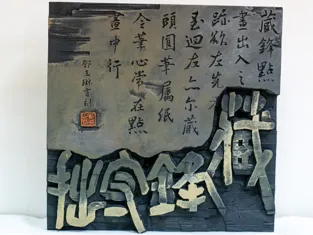 藏鋒點
畫出入之
跡欲左先
至迴左亦尔藏
頭圓筆属紙
令筆心常在點
畫中行
書刻
藏鋒守拙